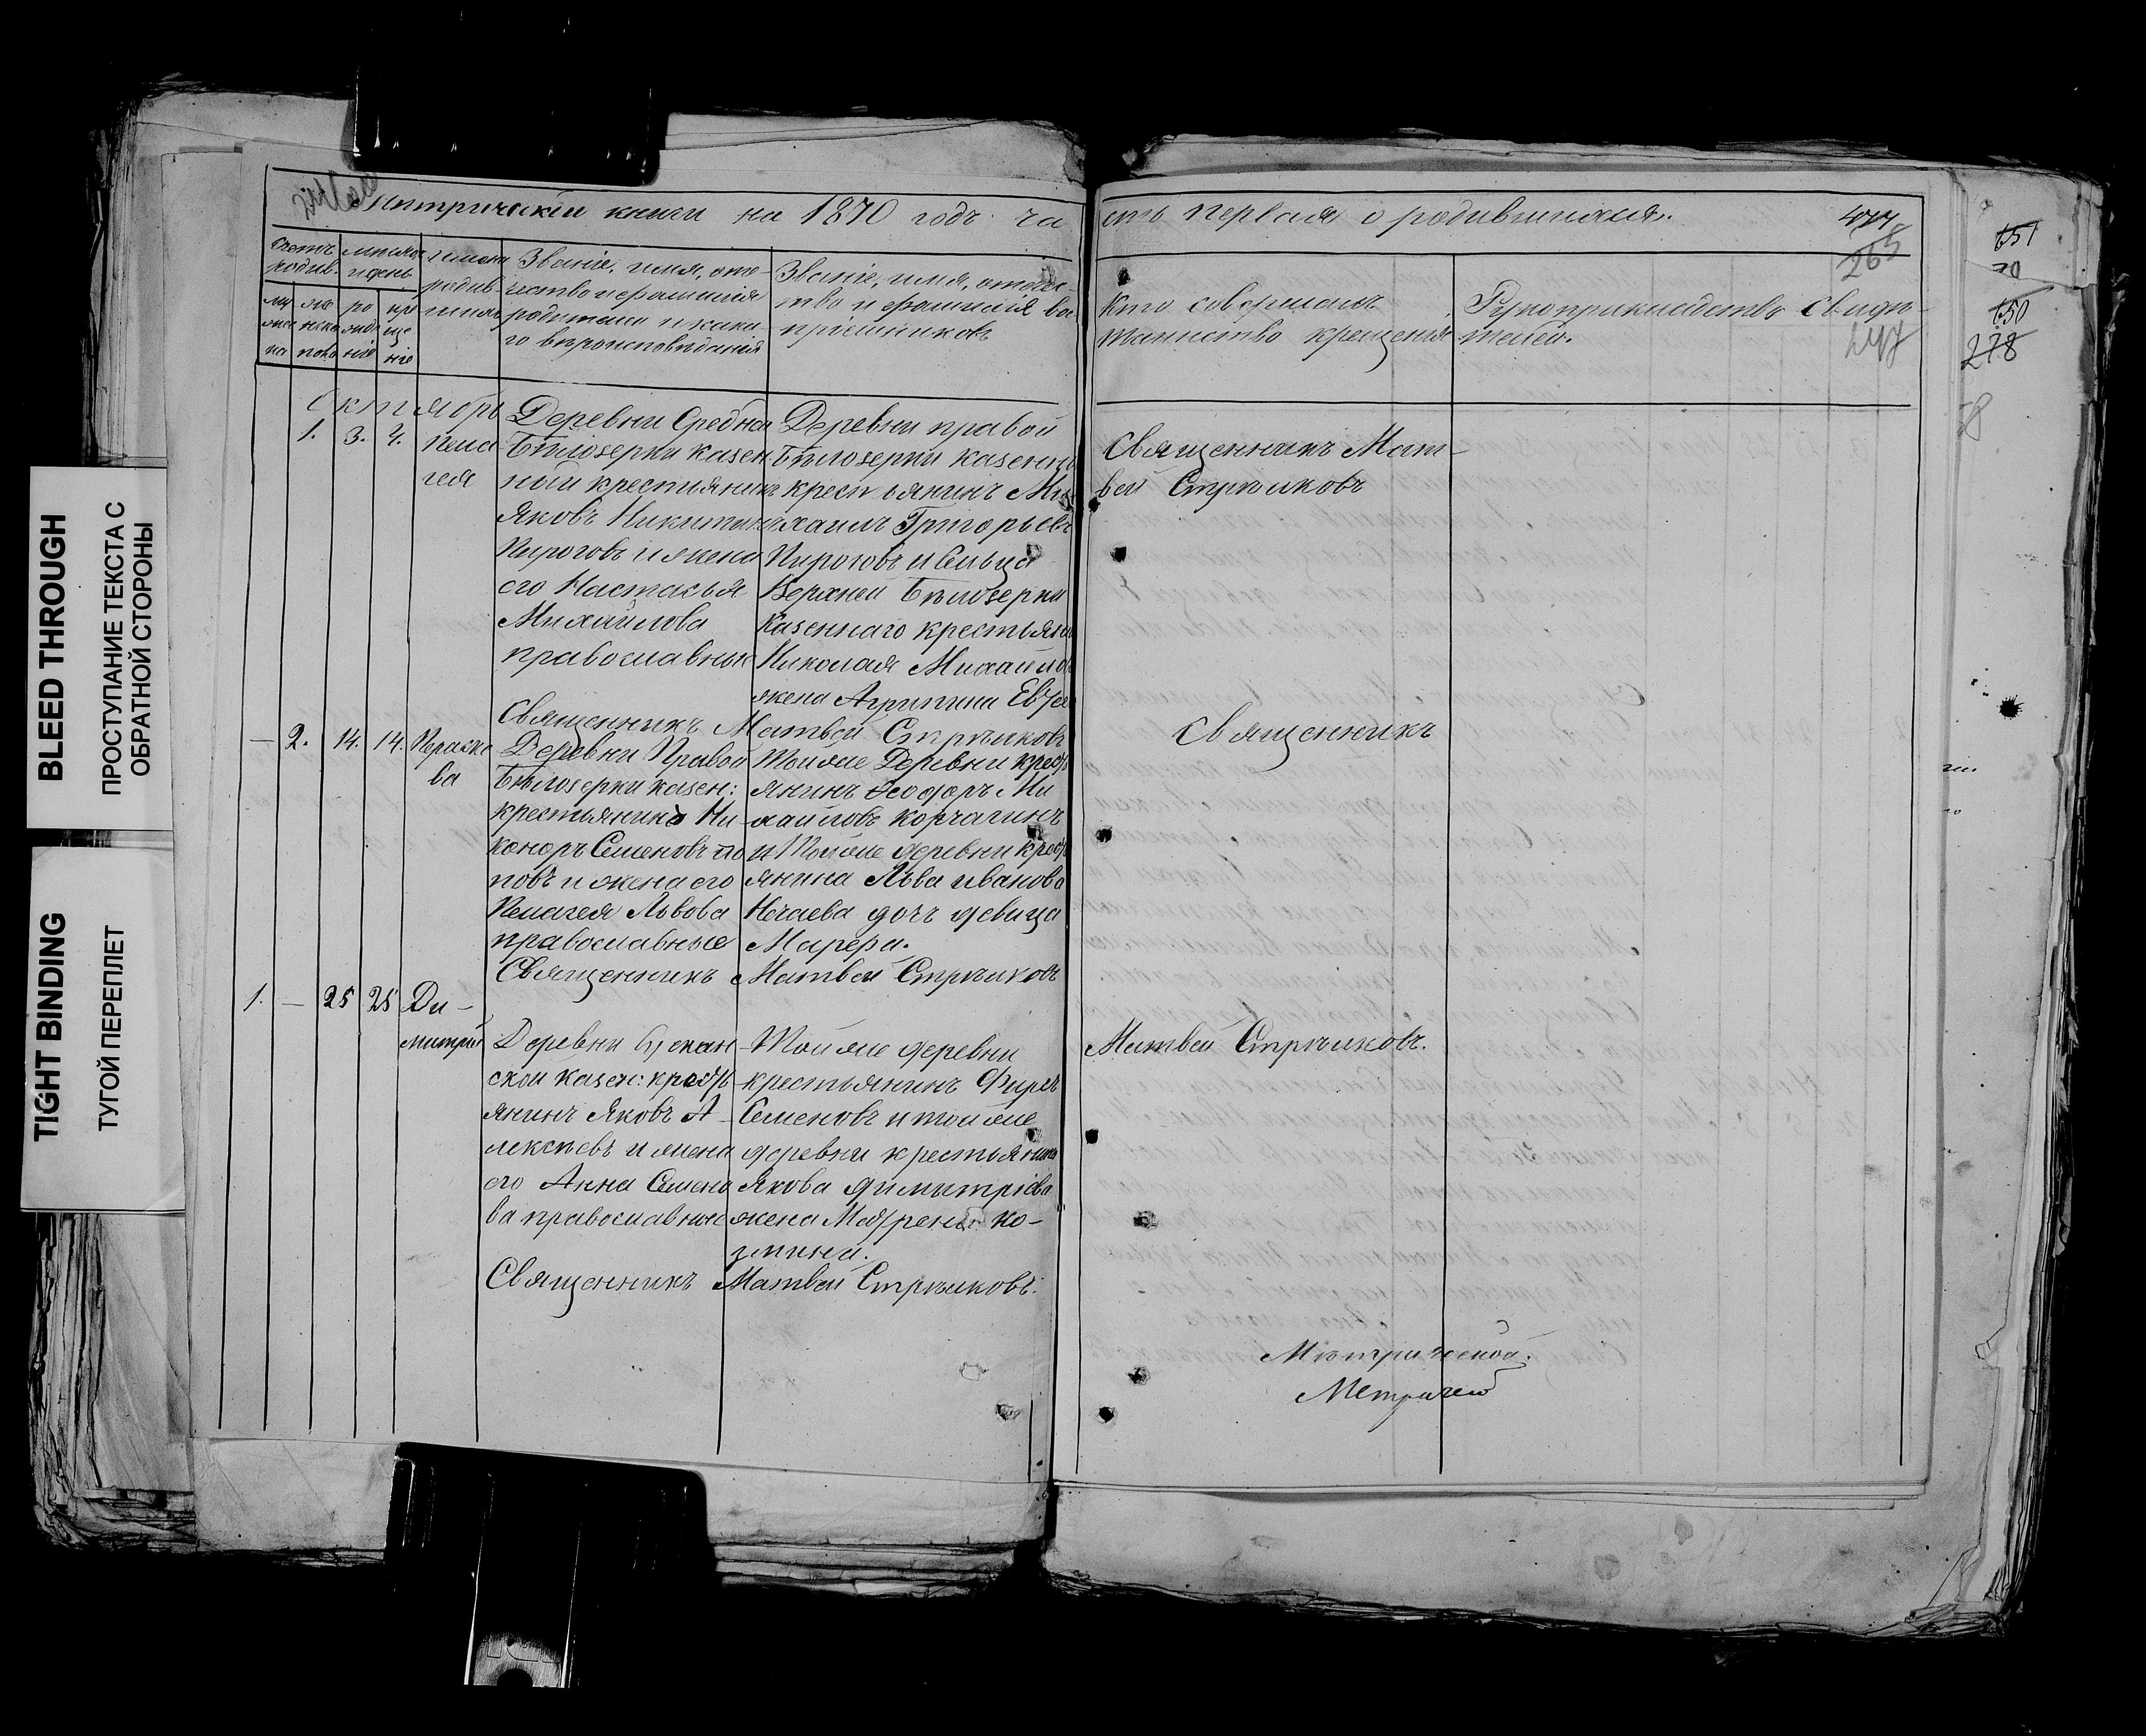 Метрической книги на 1870 годъ ча
сть первая о родившихся.
477
265
247
651
70
650
278
Счетъ родив.
месяцъ и день
имена родив-
шихся
Званіе, имя, оте-
чество и фамилія
родителей и како-
го вѣроисповѣданія
Званіе, имя, отече-
ство и фамилія во-
пріемниковъ
Кто совершалъ
таинство крещенія
Рукоприкладство свидѣ-
телей.
му
жес
ка
же
нска
пола
ро
жде
ніе
кре
ще
ніе
Октябрь
1. 3. 4. Пела
гея
Деревни Средней
Бѣлозерки казен
ный крестьянинъ
Яковъ Никитинъ
Пироговъ и жена
его Настасья
Михайлова
православные
Деревни правой
Бѣлозерки казенны
крестьянинъ Ми
хаилъ Григорьевъ
Пироговъ и Сельца
Верхней Бѣлозерки
Казеннаго крестьяни
Николая Михайлов
жена Агрипина
Священникъ Мат-
вей Стрѣлковъ
Священникъ Матвей Стрѣлковъ
— 2. 14. 14. Параске
ва
Деревни Правой
Бѣлозерки казен:
крестьянинъ Ни-
каноръ Семеновъ По
повъ и жена его
Пелагея Львова
православные
Тойже Деревни крест
янинъ Ѳеодоръ Ми
хайловъ Корчагинъ
и Тойже деревни крест
янина Льва Иванова
Нечаева дочь девица
Марѳа.
Священникъ
Священникъ Матвей Стрѣлковъ
1. — 25 25 Ди-
митрій
Деревни
ской казен: крест
янинъ Яковъ А-
лексѣевъ и жена
его Анна Семено
ва православные
Тойже деревни
крестьянинъ Фирсъ
Семеновъ и тойже
деревни крестьянина
Якова Димитріева
жена Матрена Ко-
змина.
Матвей Стрѣлковъ.
Священникъ Матвей Стрѣлковъ.
Метрической.
Метричей
BLEED THROUGH
ПРОСТУПАНИЕ ТЕКСТА С
ОБРАТНОЙ СТОРОНЫ
TIGHT BINDING
ТУГОЙ ПЕРЕПЛЕТ